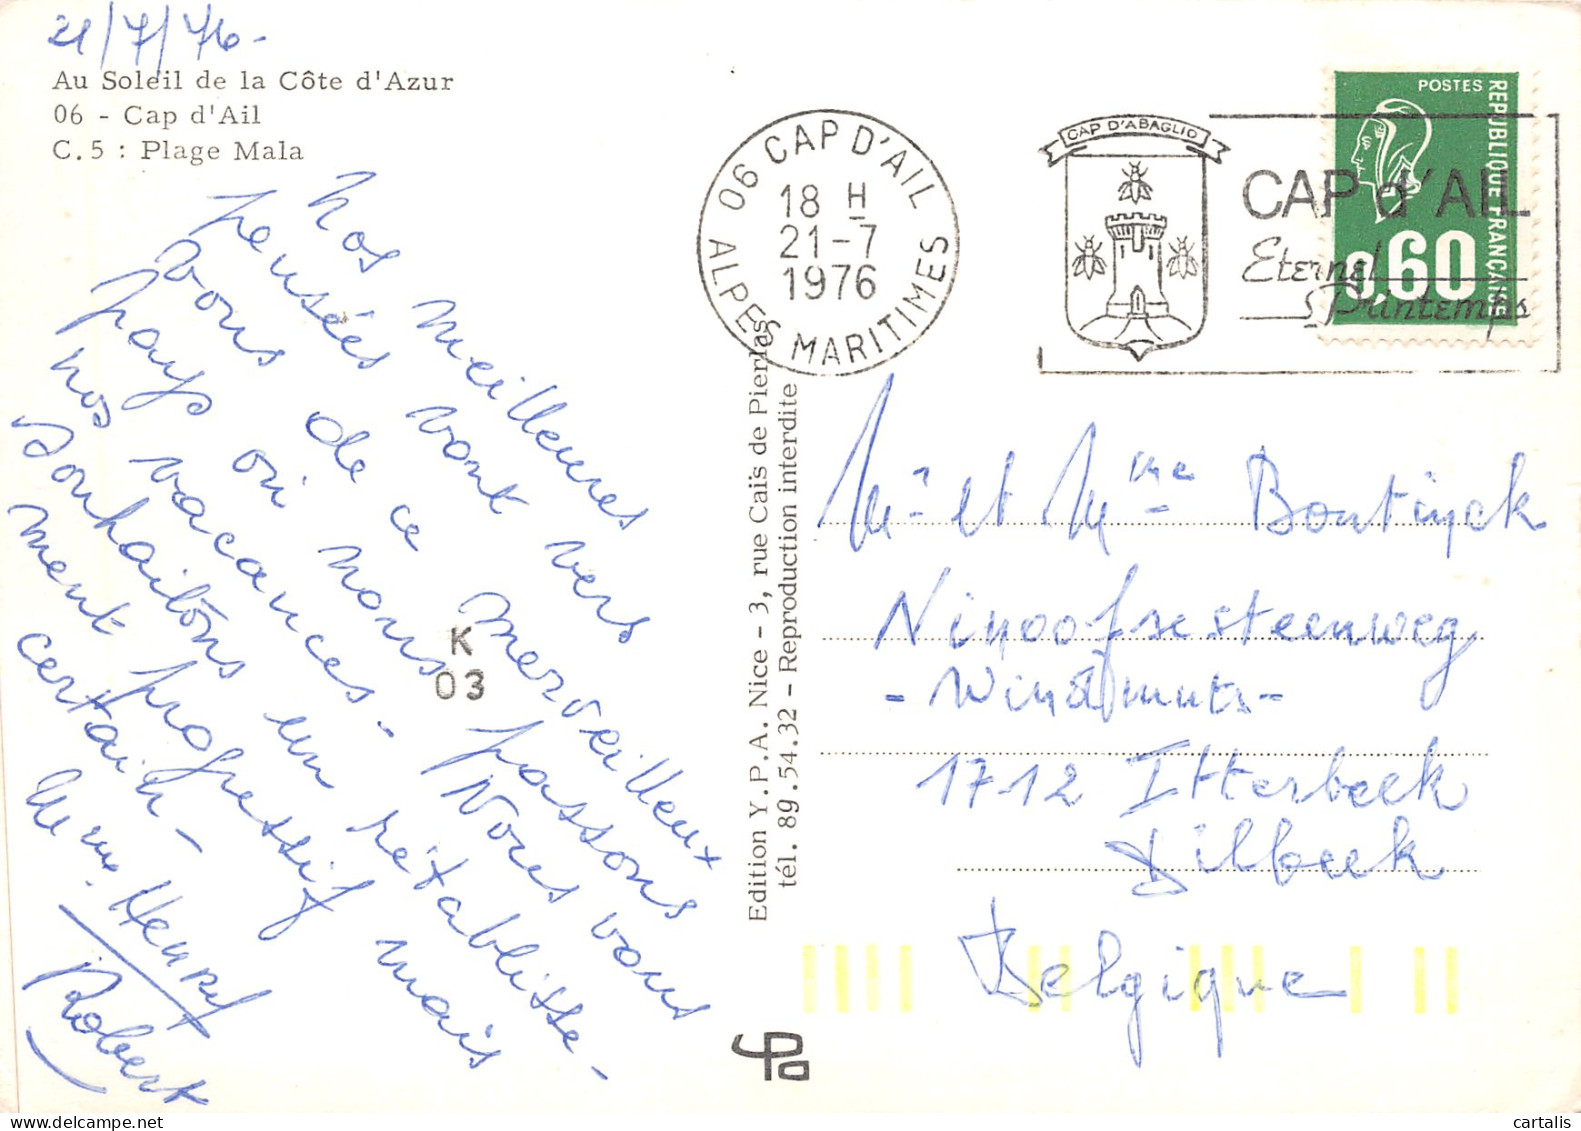 21/7/76-
Au Soleil de la Côte d'Azur
06 - Cap d'Ail
C.5 : Plage Mala
Nos meilleures
pensées vont vers
vous de ce merveilleux
pays où nous passons
nos vacances - Nous vous
souhaitons un rétablisse-
ment progressif mais
certain -
Mme Henry
Robert
K
03
Edition Y.P.A. Nice - 3, rue Caïs de Pierlas
tél. 89.54.32 - Reproduction interdite
06 CAP D'AIL
18 H
21-7
1976
ALPES MARITIMES
CAP D'ABAGLIO
CAP d'AIL
Eternel
Printemps
POSTES
REPUBLIQUE FRANCAISE
0,60
Mr et Mme Bontinyck
Ninoofsesteenweg
1712 Itterbeek
Dilbeek
Belgique
cartalis